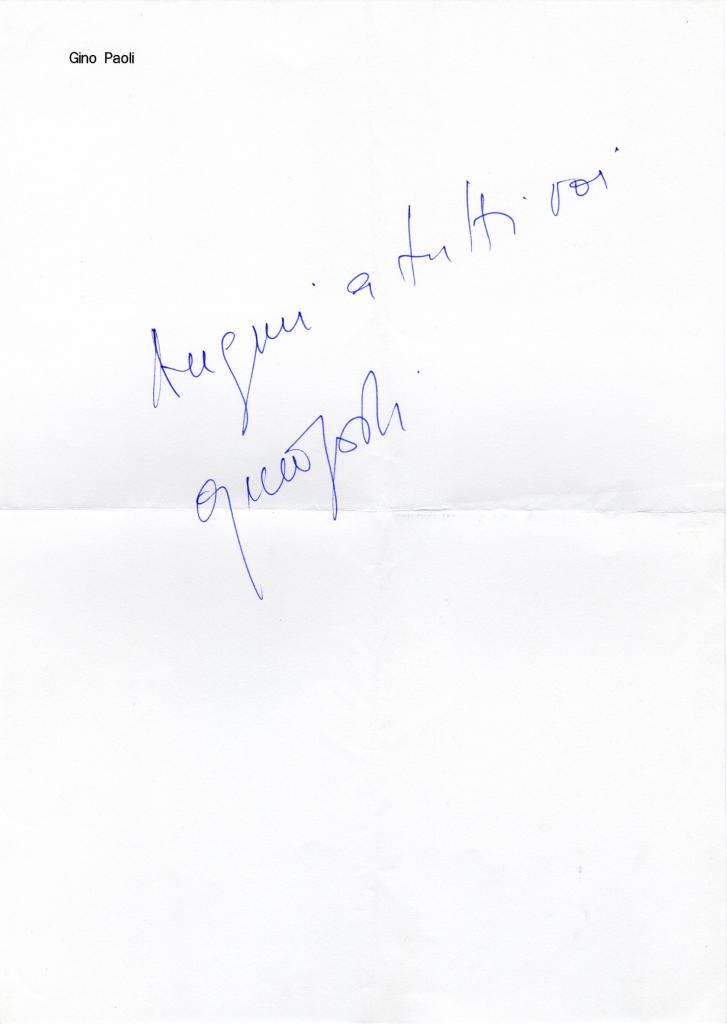 Gino Paoli
Auguri a tutti voi
gino paoli